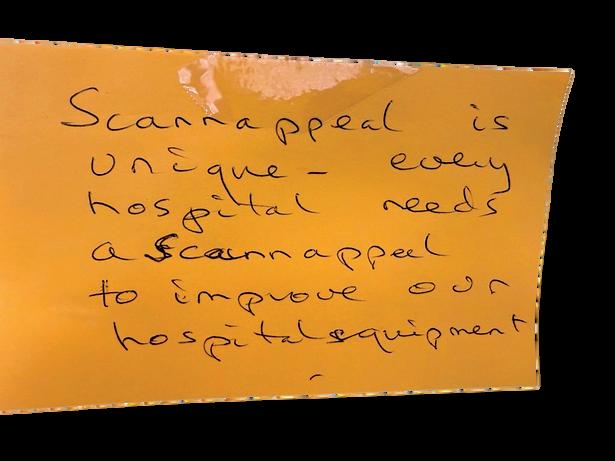 Scannappeal is
unique - every
hospital needs
a Scannappeal
to improve our
hospital equipment